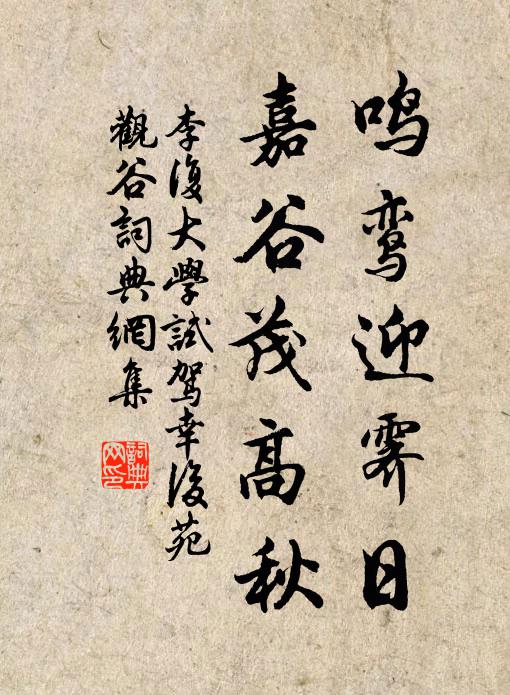 鸣鸾迎霁日
嘉谷茂高秋
李復大學試駕幸後苑
觀谷詞典網集
詞典
网印